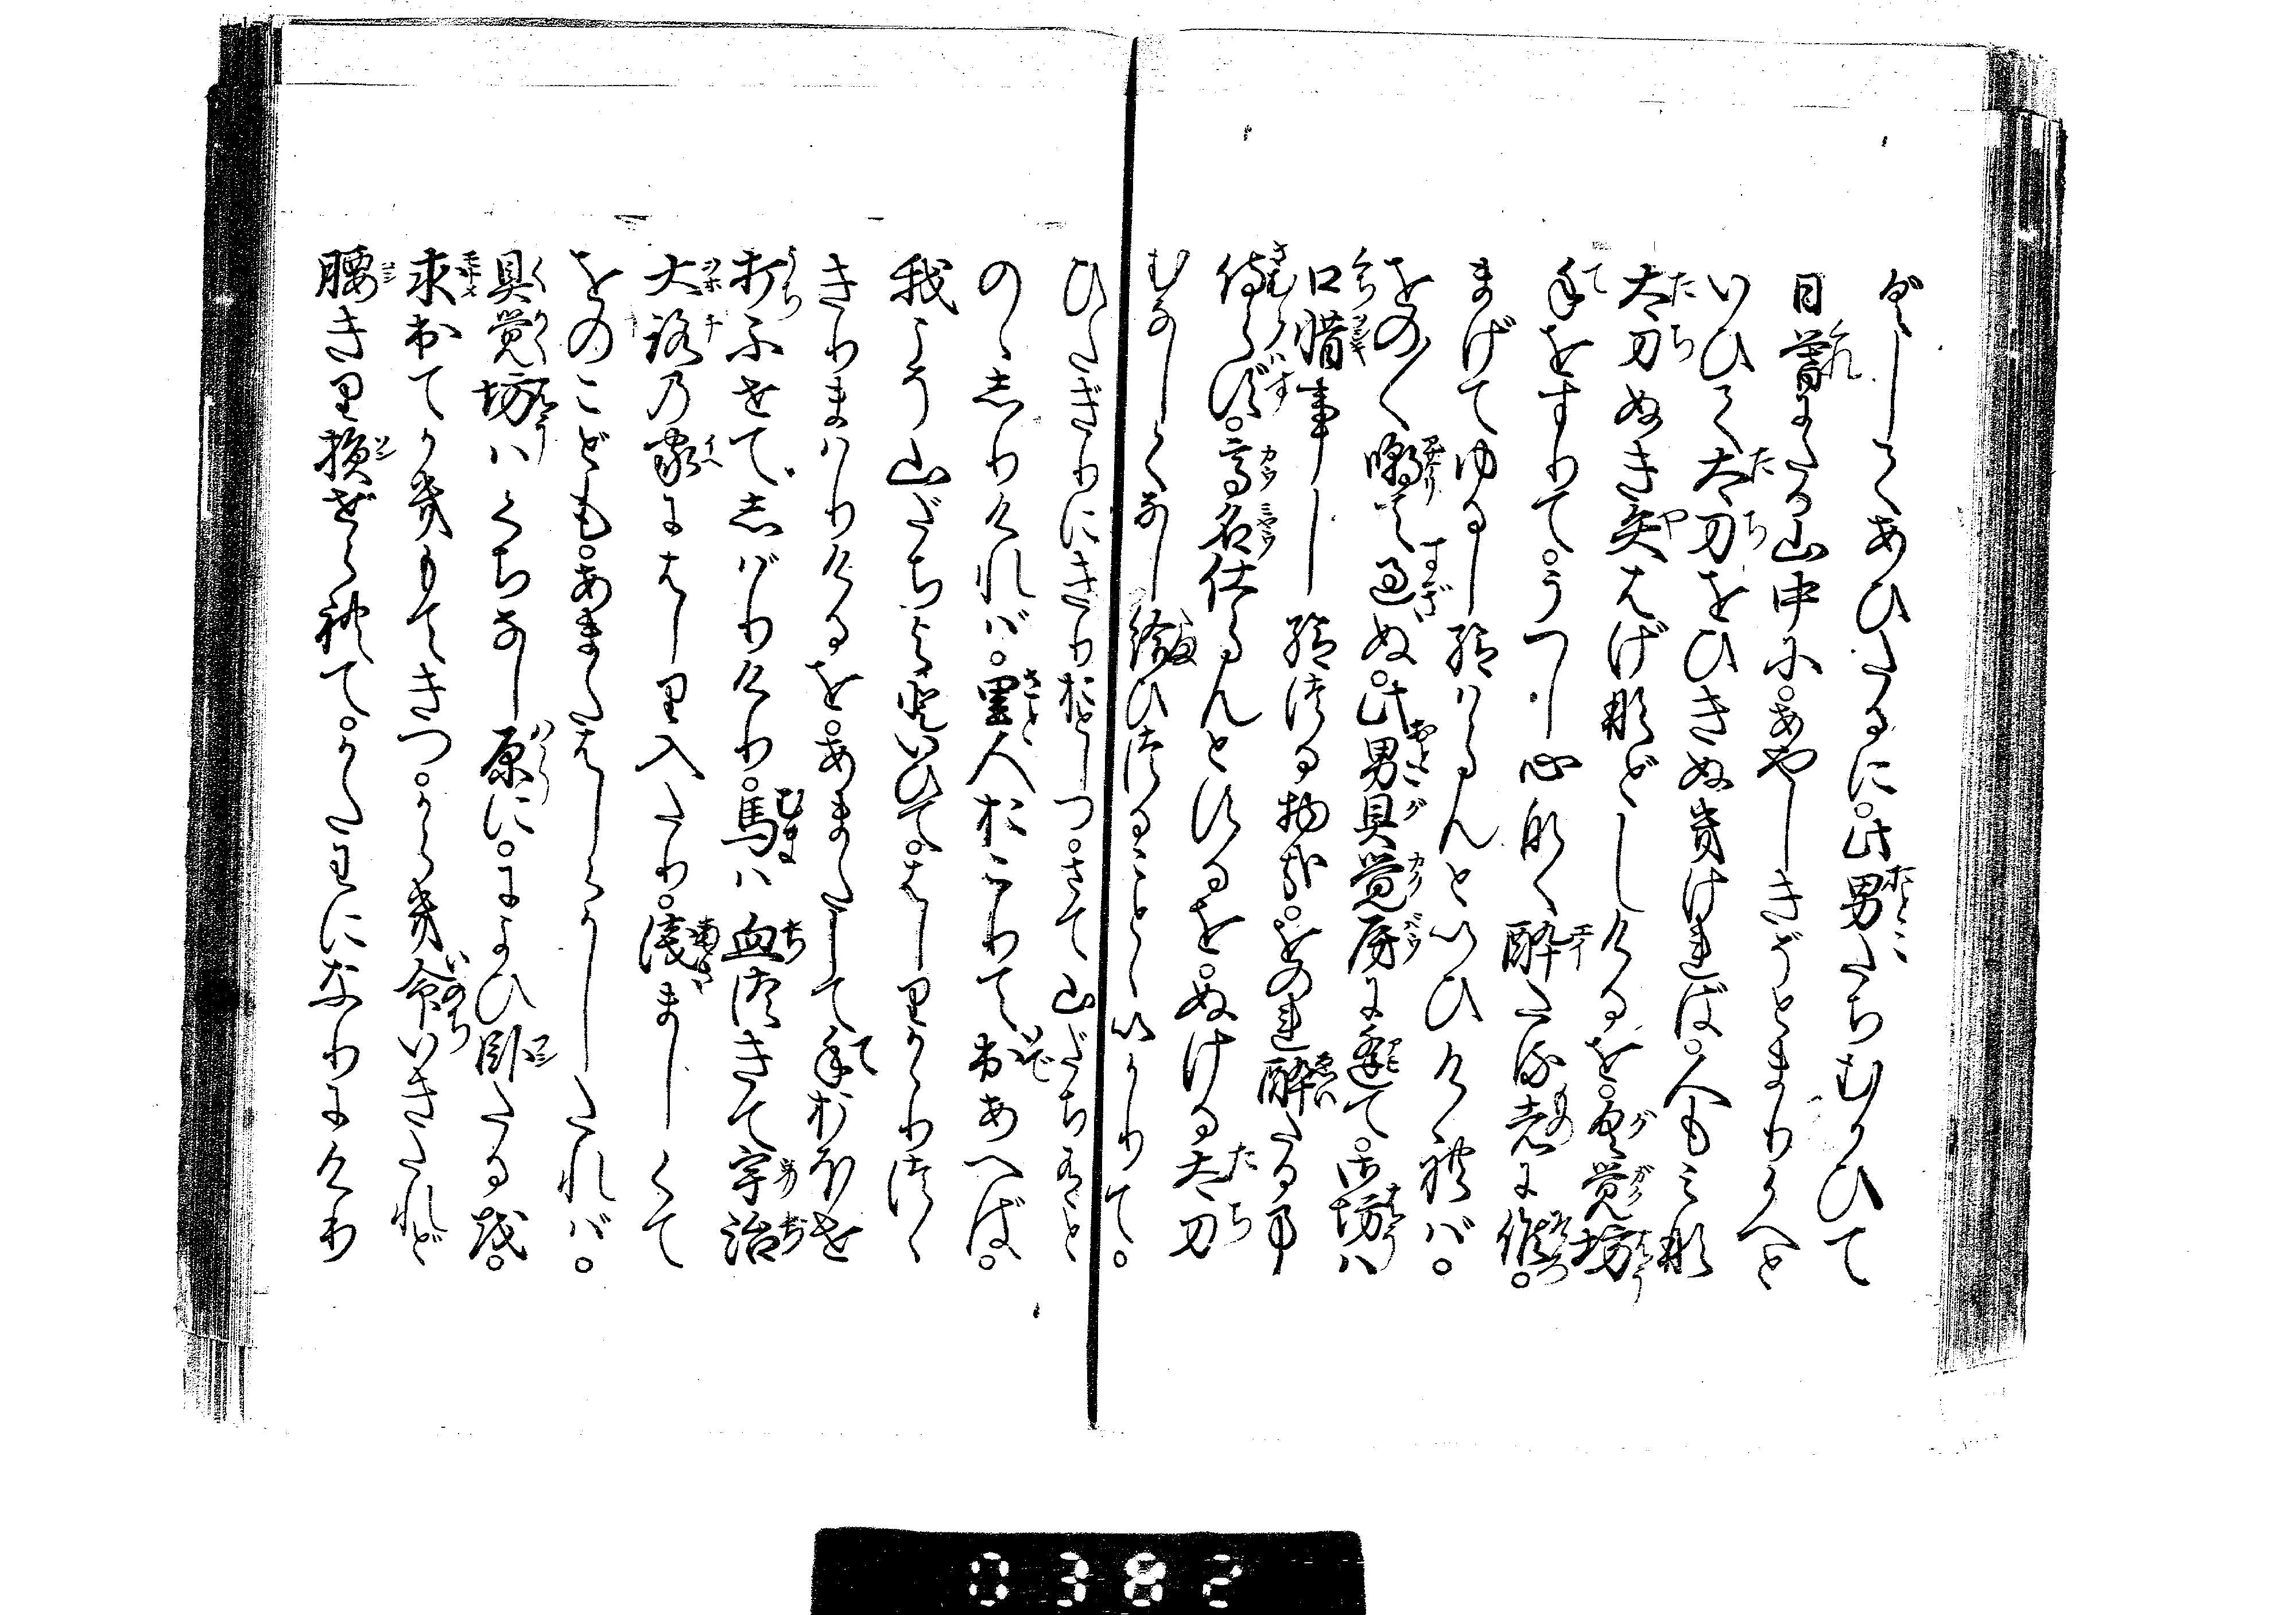 ぐしてあひたるに。此男たちむかひて
日暮にたる山中に。あやしきぞとまり候へと
いひて太刀をひきぬきければ。人もみな
太刀ぬき矢はげなどしけるを。具覚坊
手をすりて。うつし心なく酔たる者に候。
まげてゆるし給はらんといひければ。
をの〳〵嘲て過ぬ。此男具覚房に逢て。御坊は
口惜事し給つる物哉。をのれ酔たる事
侍らず。高名仕らんとするを。ぬける太刀
むなしくなし給ひつることゝいかりて。
ひたぎりにきりおとしつ。さて山だち有と
のゝしりければ。里人おこりて出あへば。
我こそ山だちよといひて。はしりかゝりつゝ
きりまはりけるを。あまたして手おほせ
打ふせてしばりけり。馬は血つきて宇治
大路の家にはしり入たり。浅ましくて
をのこどもあまたはしらかしたれば。
具覚坊はくちなし原に。によひ臥たるを。
求出てかきもてきつ。からき命いきたれど
腰きり損ぜられて。かたわになりにけり
0382